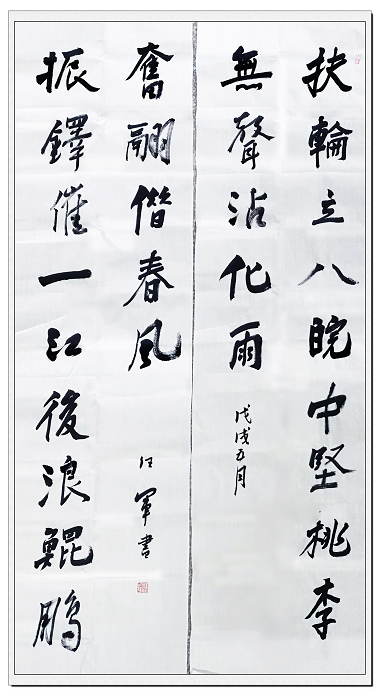 扶輪立八皖中堅桃李
無聲沾化雨
戊戌五月
振鐸催一江後浪鯤鵬
奮翮偕春風
汪軍書